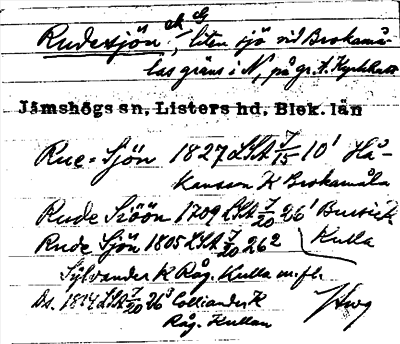 Rudesjön, liten sjö vid Brokamå-
las gräns i N, på gr. t. Kyrkhult
Jämshögs sn, Listers hd, Blek. län
Rue-Sjön 1827 LSA 7/15 10¹ Hå-
kanson K Brokamåla
Rude Siöön 1709 LSA 7/20 26¹ Bussick
Rude Sjön 1805 LSA 7/20 26² Kulla
Sylvander K Råg. Kulla m. fl.
Ds. 1824 LSA 7/20 26³ Colliander K
Råg. Kullan